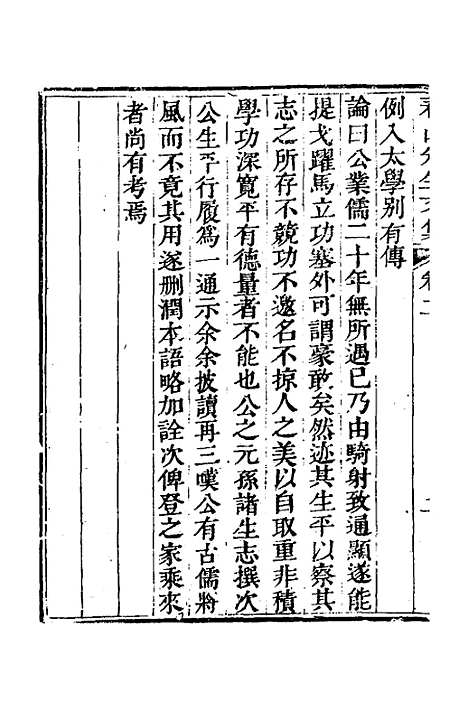 先生文集 卷二
例入太學別有傳
論曰公業儒二十年無所遇已乃由騎射致通顯遂能
提戈躍馬立功塞外可謂豪敢矣然迹其生平以察其
志之所存不競功不邀名不掠人之美以自取重非積
學功深寬平有德量者不能也公之元孫諸生志撰次
公生平行履爲一通示余余披讀再三嘆公有古儒將
風而不竟其用遂删潤本語略加詮次俾登之家乘來
者尚有考焉